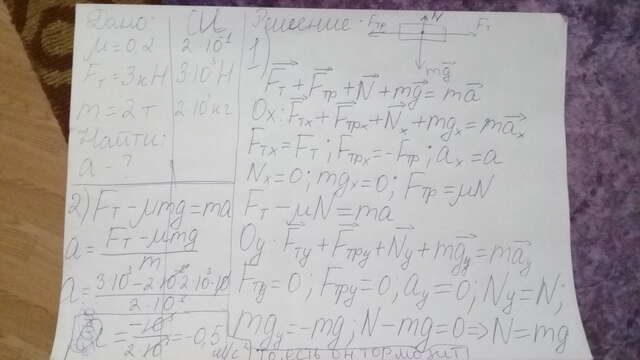 Дано:
μ=0,2
Fт=3кН
m=2т
Найти:
a-?
СИ
2·10⁻¹
3·10³Н
2·10³кг
Решение.
N
Fтр
Fт
mg
1)
Fт+Fтр+N+mg=ma
Ox: Fтx+Fтрx+Nx+mgx=max
Fтx=Fт; Fтрx=-Fтр; ax=a
Nx=0; mgx=0; Fтр=μN
Fт-μN=ma
Oy: Fтy+Fтрy+Ny+mgy=may
Fтy=0; Fтрy=0; ay=0; Ny=N;
mgy=-mg; N-mg=0=>N=mg
2) Fт-μmg=ma
a=(Fт-μmg)/m
a=(3·10³-2·10⁻¹·2·10³·10)/(2·10³)
a=(-10³)/(2·10³)=-0,5 м/с²
то есть он тормозит